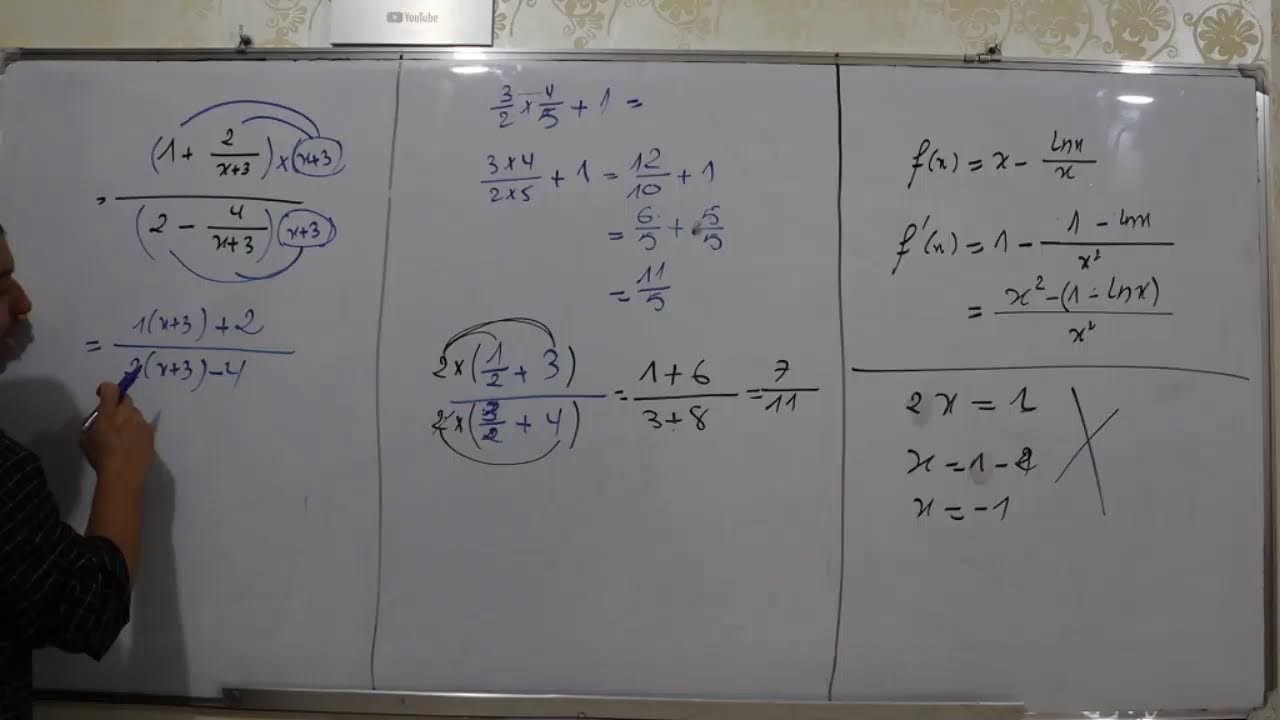 YouTube
= ((1 + 2/(x+3)) × (x+3)) / ((2 - 4/(x+3)) (x+3))
= (1(x+3) + 2) / (2(x+3) - 4)
3/2 × 4/5 + 1 =
(3×4)/(2×5) + 1 = 12/10 + 1
= 6/5 + 5/5
= 11/5
(2×(1/2 + 3)) / (2×(3/2 + 4)) = (1+6)/(3+8) = 7/11
f(x) = x - lnx/x
f'(x) = 1 - (1 - lnx)/x²
= (x² - (1 - lnx))/x²
2x = 1
x = 1 - 2
x = -1